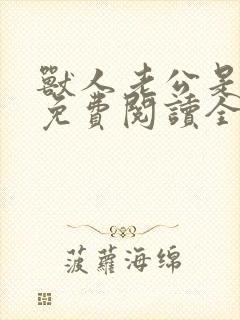 獸人老公是
免費閱讀全
菠蘿海綿